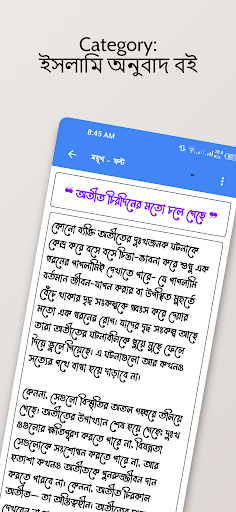 Category:
ইসলামি অনুবাদ বই
8:45 AM
ময়ূখ - ফন্ট
❝ অতীত চিরদিনের মতো চলে গেছে ❞
কোনো ব্যক্তি অতীতের দুঃখজনক ঘটনাকে
কেন্দ্র করে বসে বসে চিন্তা-ভাবনা করে শুধু এক
ধরনের পাগলামিই দেখাতে পারে- যে পাগলামি
বর্তমান জীবন-যাপন করার বা উপস্থিত মুহূর্তে
বেঁচে থাকার দৃঢ় সংকল্পকে ধ্বংস করে দেয়ার
মতো এক ধরনের রোগ। যাদের দৃঢ় সংকল্প আছে
তারা অতীতের ঘটনাবলীকে ধুয়ে মুছে ফেলে
দিয়ে ভুলে গিয়েছে। এ ঘটনাগুলো আর কখনও
সত্যের পথে বাধা হয়ে দাড়াবে না।
কেননা, সেগুলো বিস্মৃতির অতল গহ্বরে তলিয়ে
গেছে। অতীতের উপাখ্যান শেষ হয়ে গেছে; দুঃখ
ওগুলোর ক্ষতিপূরণ করতে পারে না, বিষন্নতা
সেগুলোকে সংশোধন করতে পারে না, আর
হতাশা কখনও অতীতকে পুনরুজ্জীবন দান
করতে পারবে না। কেননা, অতীত চিরকাল
অতীত— তা অস্তিত্বহীন।